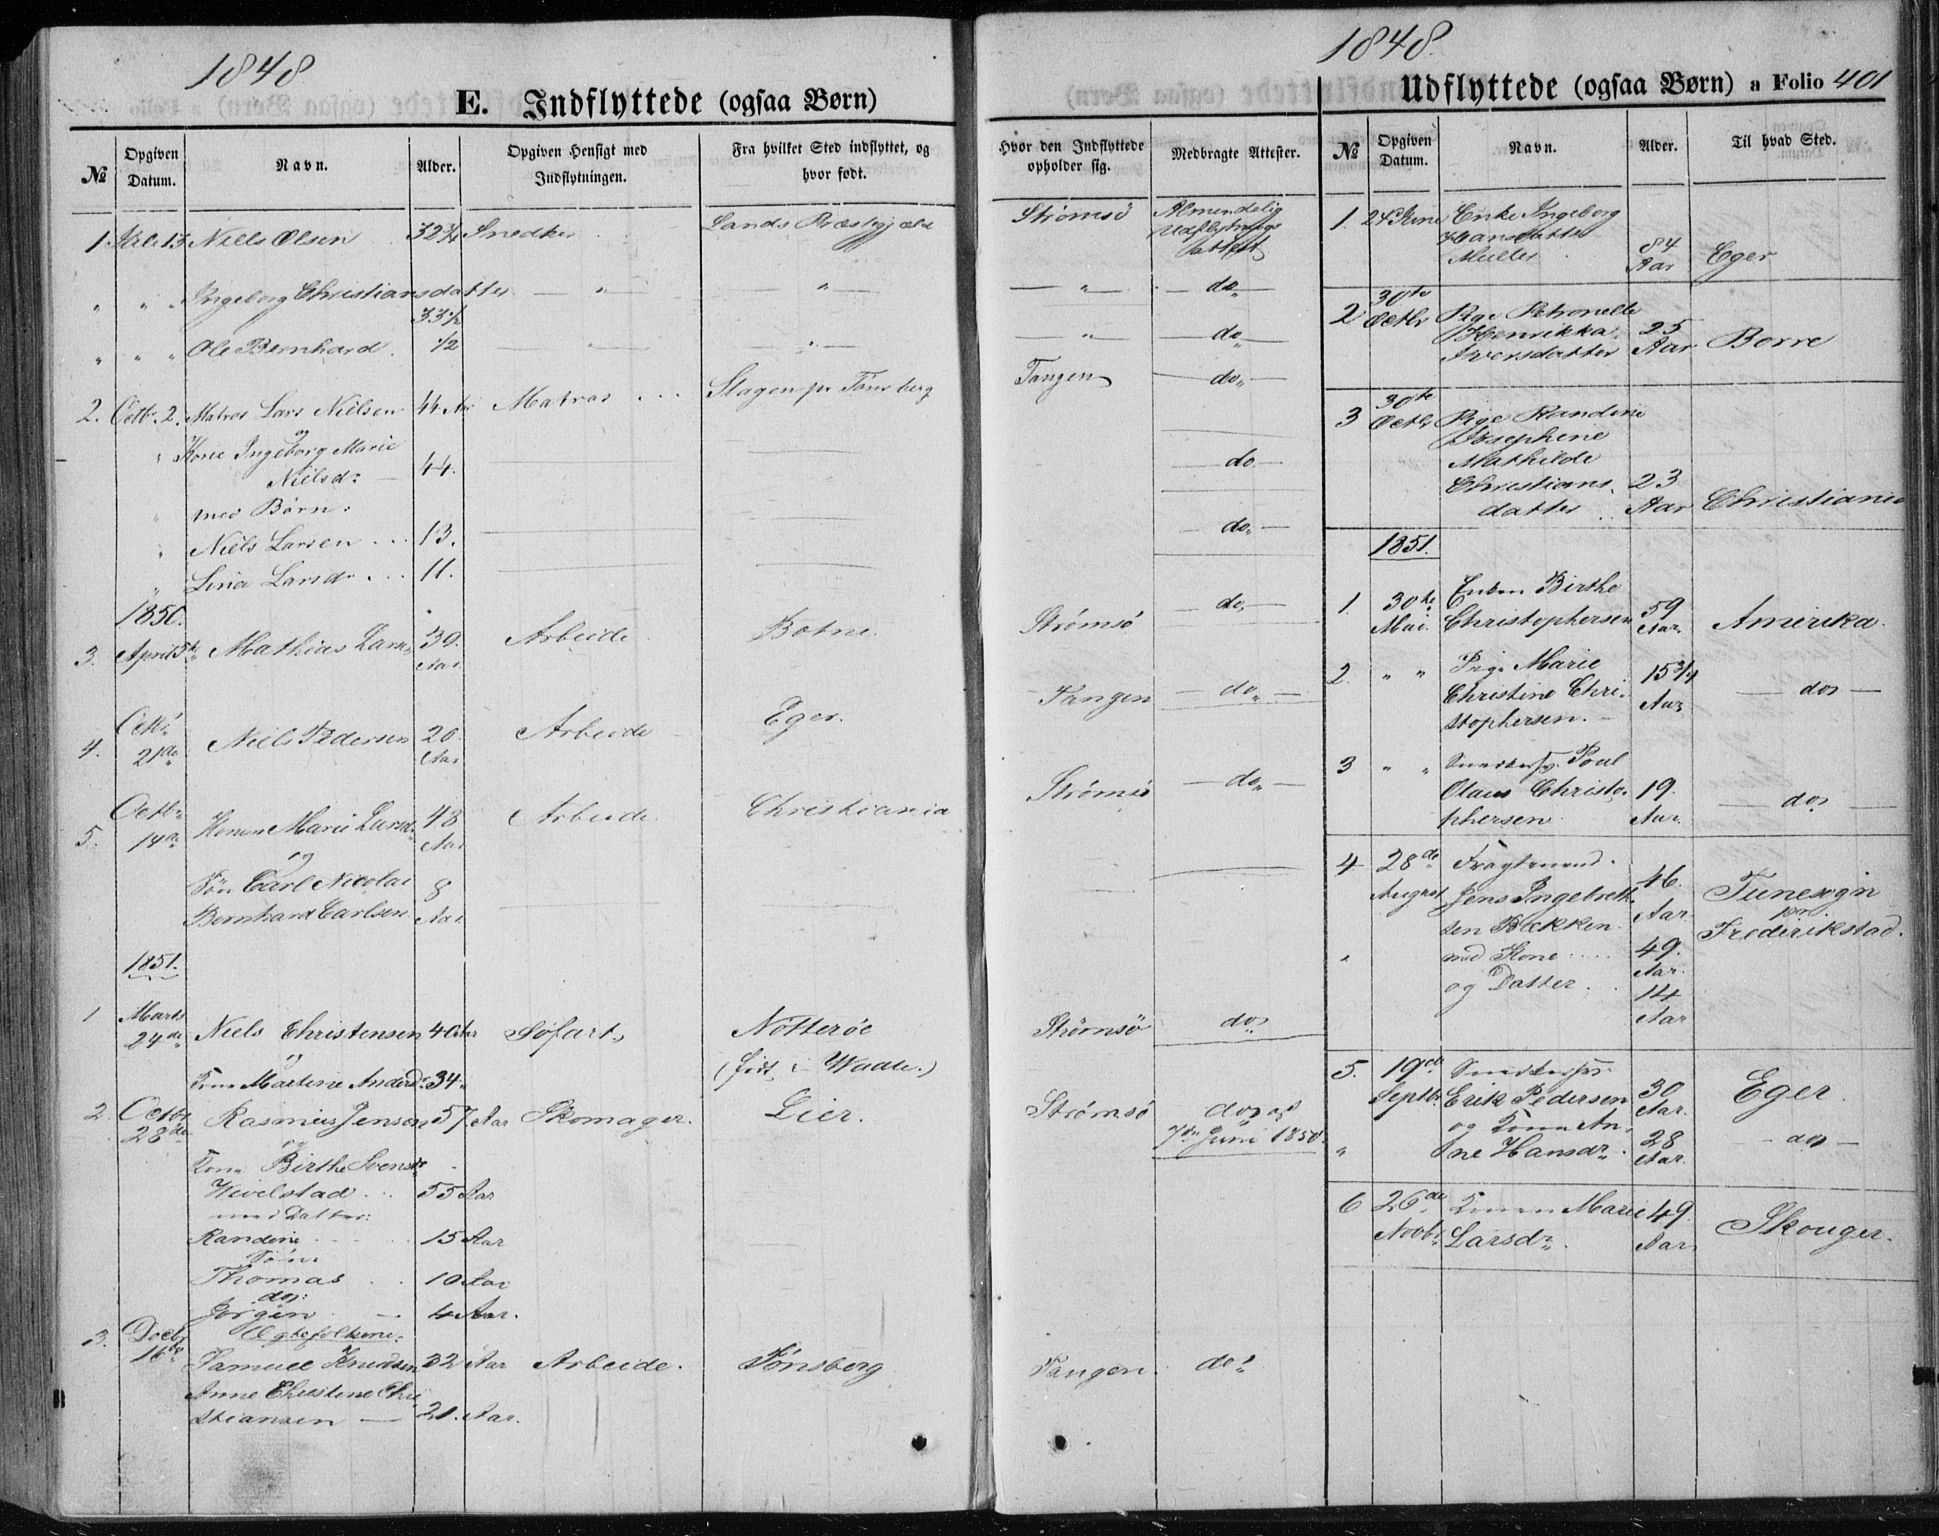 1848
E. Indflyttede (ogsaa Børn)
№
Opgiven Datum.
Navn.
Alder.
Opgiven Hensigt med Indflytningen.
Fra hvilket Sted indflyttet, og hvor født.
1 13 Niels Olsen 32¾ Snedker Lands Præstegjæld
" " " Ingeborg Christiansdatter — " — — " —
33½
" " " Ole Bernhard. ½ — " — — " —
2. Octbr. 2. Matros Lars Nielsen 44 Aar Matros ... Slagen pr Tønsberg
og
" Kone Ingeborg Marie
Nielsd: 44.
" med Børn:
" Niels Larsen ... 13.
" Lina Larsdr ... 11.
1850.
3. April 5te Mathias Larsen 39. Aar. Arbeide Botne.
4. Octbr 21de Niels Pedersen 20. Aar Arbeide Eger.
5. Octbr 14de Konen Marie Larsd. 48 Aar Arbeide. Christiania
og
Søn Carl Nicolai 8
Bernhard Carlsen Aar.
1851.
1 Marts 24de Niels Christensen 40 Aar Søfart, Nøtterøe
og (født i Waale.)
Kone Martine Andersdr 34.
2. Octbr 28de Rasmus Jensen 57. Aar Skomager. Lier.
og
Kone Birthe Svensdr
Wivelstad ... 55 Aar
med Datter:
Randine 15 Aar
Søn:
Thomas .. 10 Aar
do:
Jørgen — 4 Aar.
3. Decbr 16de Ægtefolkene:
Samuel Knudsen 32 Aar Arbeide. Tønsberg
Anne Christine Chri
stiansen — 21. Aar.
1848.
Hvor den Indflyttede opholder sig.
Medbragte Attester.
Strømsö Almindelig Udflytnings Attest
— " — — do. —
— " — — do. —
Tangen — do. —
— do —
— do. —
Strømsö — do. —
Tangen — do. —
Strømsö — do. —
Strømsö do.
Strømsö do. af
7de Juni 1850.
Tangen. do.
Udflyttede (ogsaa Børn) a Folio 401
№
Opgiven Datum.
Navn.
Alder.
Til hvad Sted.
1. 24 June Enke Ingeborg
Hansdatter
Muller 84 Aar Eger
2 30te Octbr Pige Petronelle
Henrikka 25
Iversdatter Aar Borre
3 30te Octbr Pige Randine
Josephine
Mathilde
Christians 23
datter .. Aar Christiania
1851.
1. 30te Mai. Enken Birthe
Christophersen 59 Aar. Amerika.
2. " " Pige Marie 15¾
Christine Chri- Aar — do. —
stophersen.
3 " " Snedkersv. Poul
Olaus Christo- 19.
phersen. Aar. — do. —
4 28de August Fragtmand.
Jens Ingebreth- 46. Tunesogn
sen Bakken Aar. pr. Frederikstad.
" med Kone .... 49. Aar.
og Datter .. 14 Aar
5. 19de Septbr. Snedkersv.
Erik Pedersen 30 Aar. Eger.
og Kone An-
" ne Hansdr. 28 Aar. — do —
6 26de Novbr Konen Marie 49.
Larsdr. Aar. Skouger.